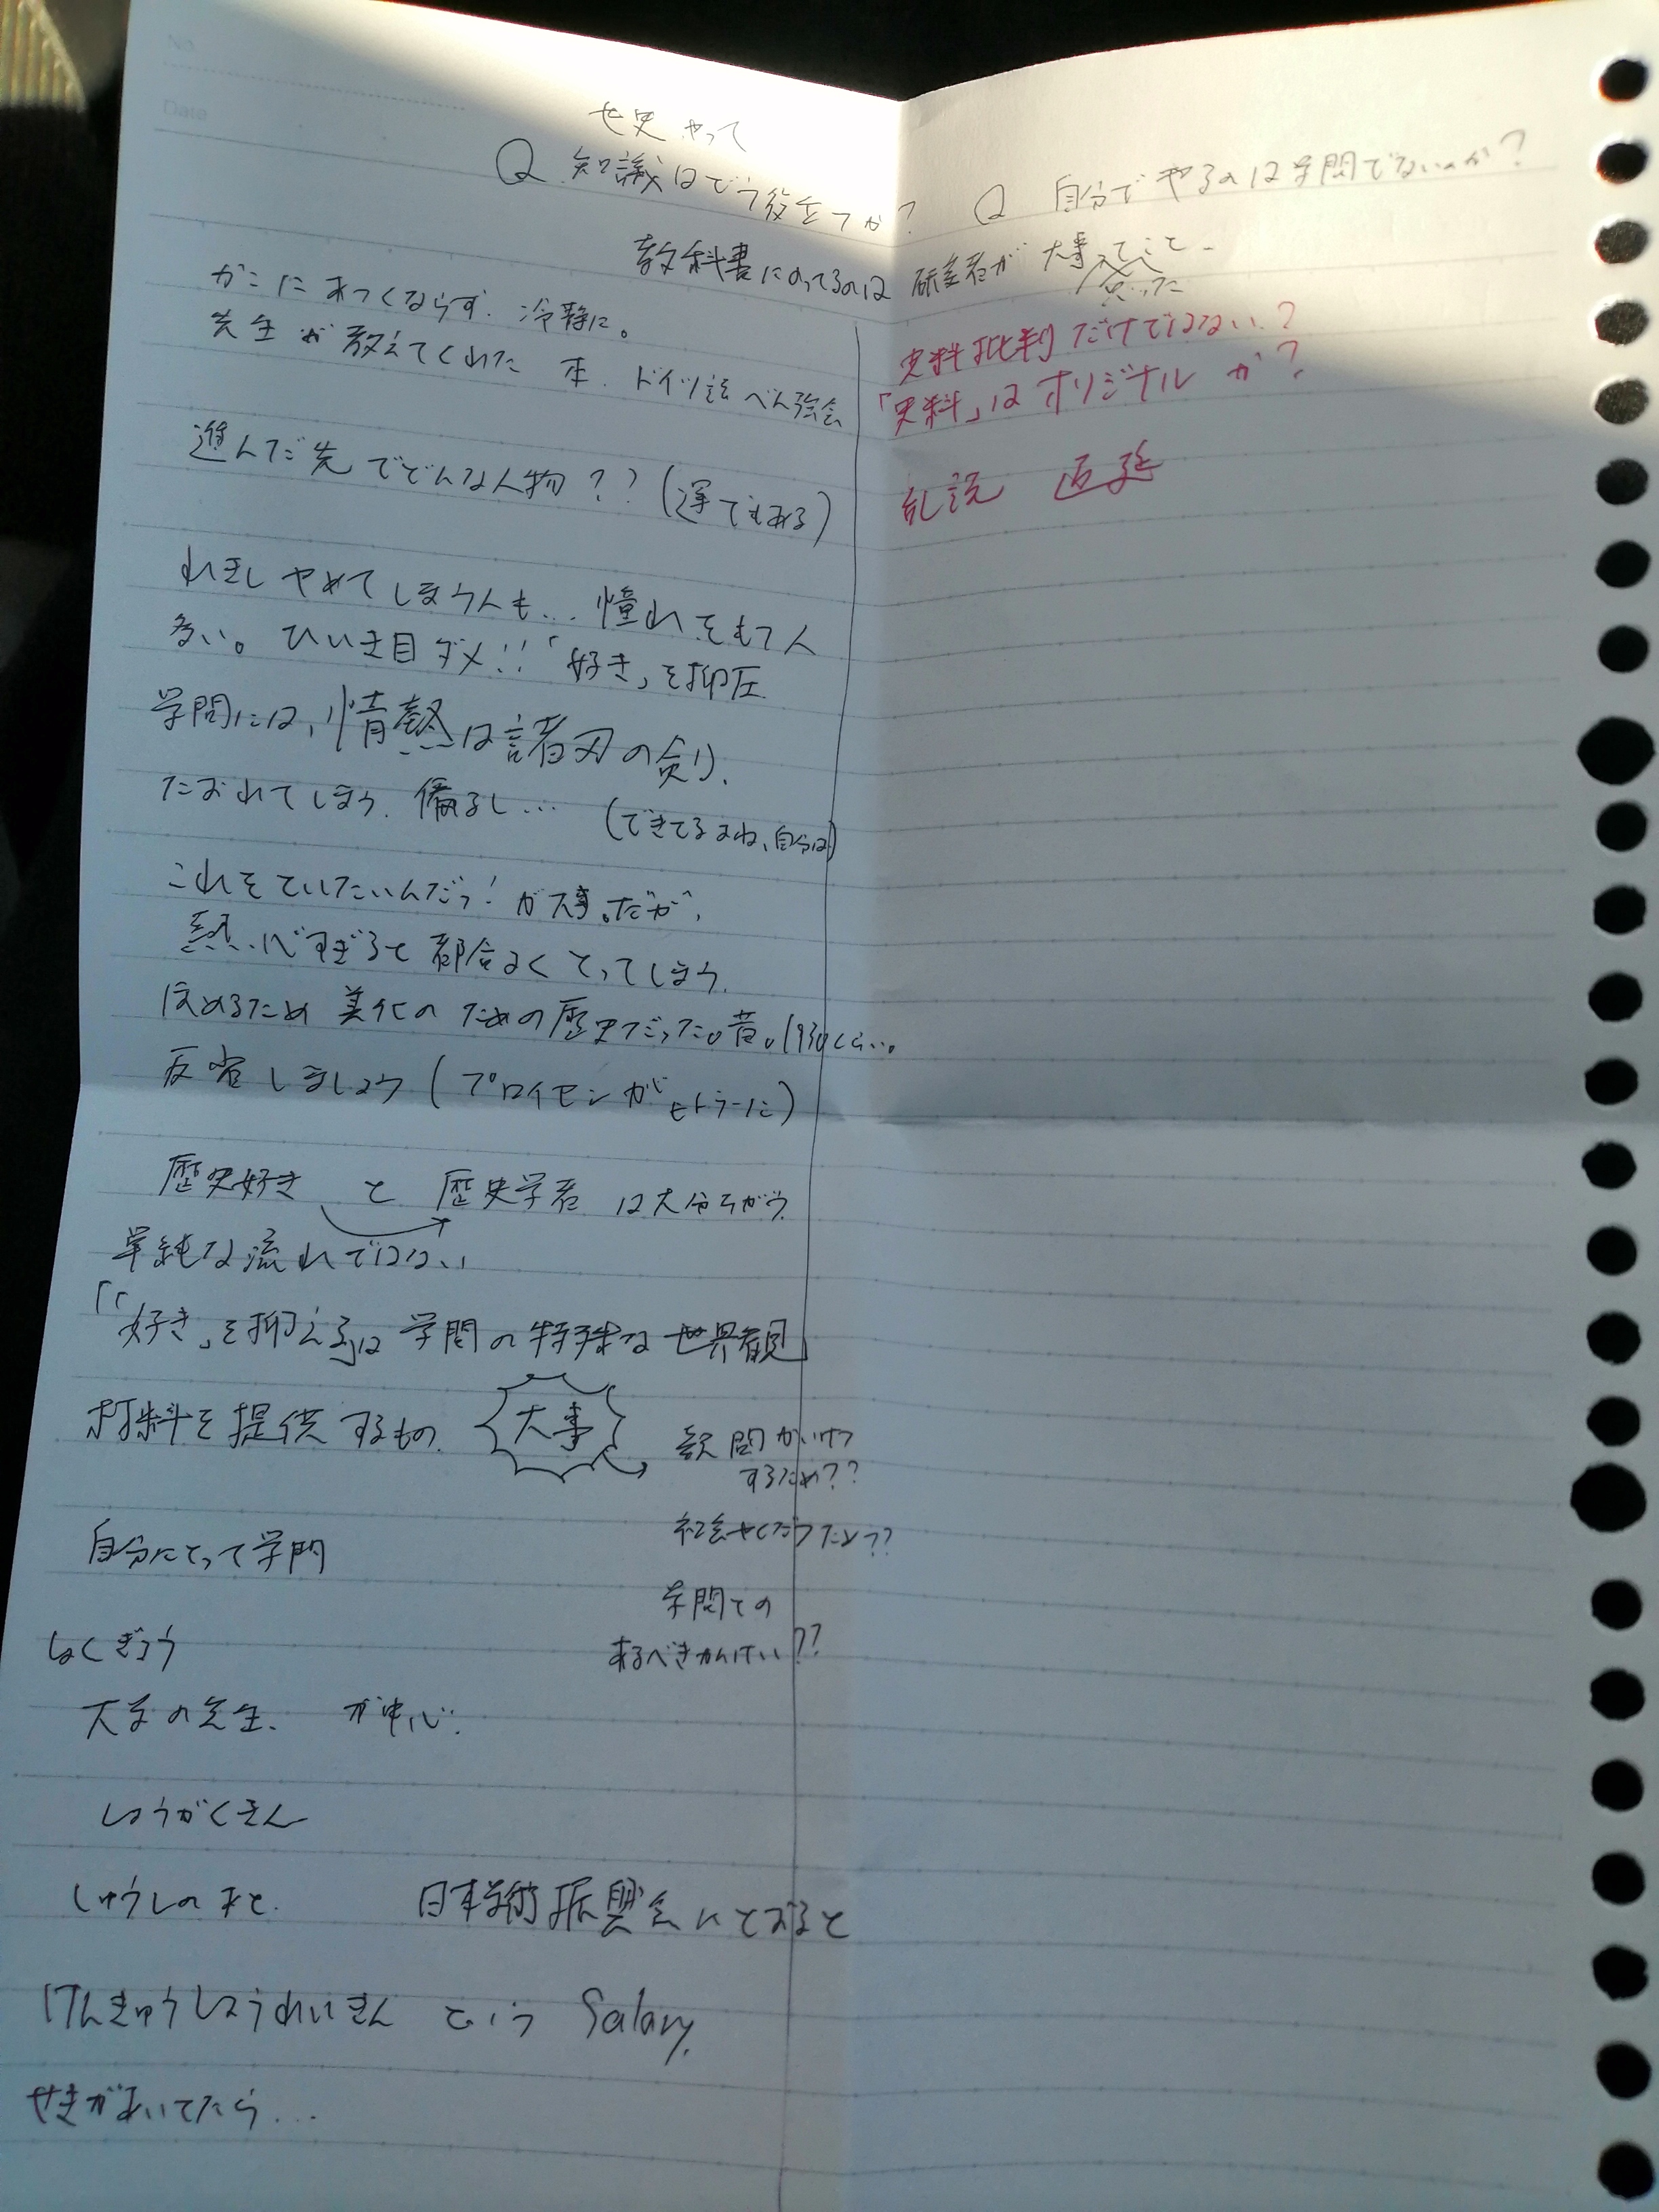 No.
Date
セ史 やって
Q 知識はどう役立つか?
Q 自分でやるのは学問でないのか?
教科書にのってるのは 研究者が 大事ってこと
思った
かこにあつくならず、冷静に。
先生が教えてくれた 本、ドイツ語べん強会
進んだ先でどんな人物??(運でもある)
れきしやめてしまう人も… 憧れをもつ人
多い。ひいき目ダメ!!「好き」を抑圧
学問には、情熱は諸刃の剣り、
たおれてしまう、偏るし… (できてるよね、自分は)
これをていしたいんだっ!が大事。だが、
熱心すぎると都合よくとってしまう。
ほめるため 美化の ための歴史だった。昔。1930くらい。
反省しましょう(プロイセンがヒトラーに)
歴史好き と 歴史学者 は大分ちがう
単純な流れではない
「「好き」を抑える」は 学問の特殊な世界観
材料を提供するもの 大事
疑問かいけつ
するため??
社会やくだつため??
自分にとって学問
学問との
あるべきかんけい??
しょくぎょう
大学の先生、 が中心。
しょうがくきん
しゅうしのあと、 日本学術振興会にとおると
けんきゅうしょうれいきん という Salary.
せきがあいてたら…
史料批判だけではない?
「史料」はオリジナルか?
乱説